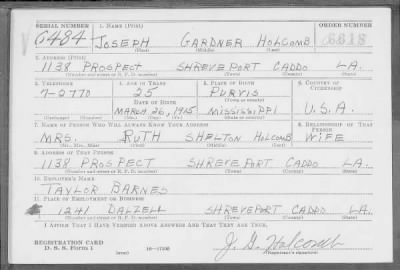 SERIAL NUMBER 1. NAME (Print) ORDER NUMBER
6484 JOSEPH GARDNER HOLCOMB 6618
(First) (Middle) (Last)
2. ADDRESS (Print)
1138 PROSPECT SHREVEPORT CADDO LA.
(Number and street or R. F. D. number) (Town) (County) (State)
3. TELEPHONE 4. AGE IN YEARS 5. PLACE OF BIRTH 6. COUNTRY OF CITIZENSHIP
7-2770 25 PURVIS
DATE OF BIRTH (Town or county)
MARCH 26, 1915 MISSISSIPPI U.S.A.
(Exchange) (Number) (Mo.) (Day) (Yr.) (State or country)
7. NAME OF PERSON WHO WILL ALWAYS KNOW YOUR ADDRESS 8. RELATIONSHIP OF THAT PERSON
MRS. RUTH SHELTON HOLCOMB WIFE
(Mr., Mrs., Miss) (First) (Middle) (Last)
9. ADDRESS OF THAT PERSON
1138 PROSPECT SHREVEPORT CADDO LA.
(Number and street or R. F. D. number) (Town) (County) (State)
10. EMPLOYER'S NAME
TAYLOR BARNES
11. PLACE OF EMPLOYMENT OR BUSINESS
1241 DALZELL SHREVEPORT CADDO LA.
(Number and street or R. F. D. number) (Town) (County) (State)
I AFFIRM THAT I HAVE VERIFIED ABOVE ANSWERS AND THAT THEY ARE TRUE.
REGISTRATION CARD
D. S. S. Form 1 (over) 16-17105 J. G. Holcomb
(Registrant's signature)